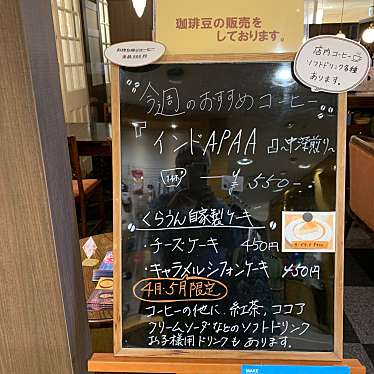 珈琲豆の販売を
しております。
店内コーヒー
ソフトドリンク各種
あります。
今週のおすすめコーヒー
『インドAPAA』〜中深煎り〜
¥550-
くらうん自家製ケーキ
・チーズケーキ 450円
・キャラメルシフォンケーキ 450円
4月・5月限定
コーヒーの他に、紅茶、ココア
クリームソーダなどのソフトドリンク
お子様用ドリンクもあります。